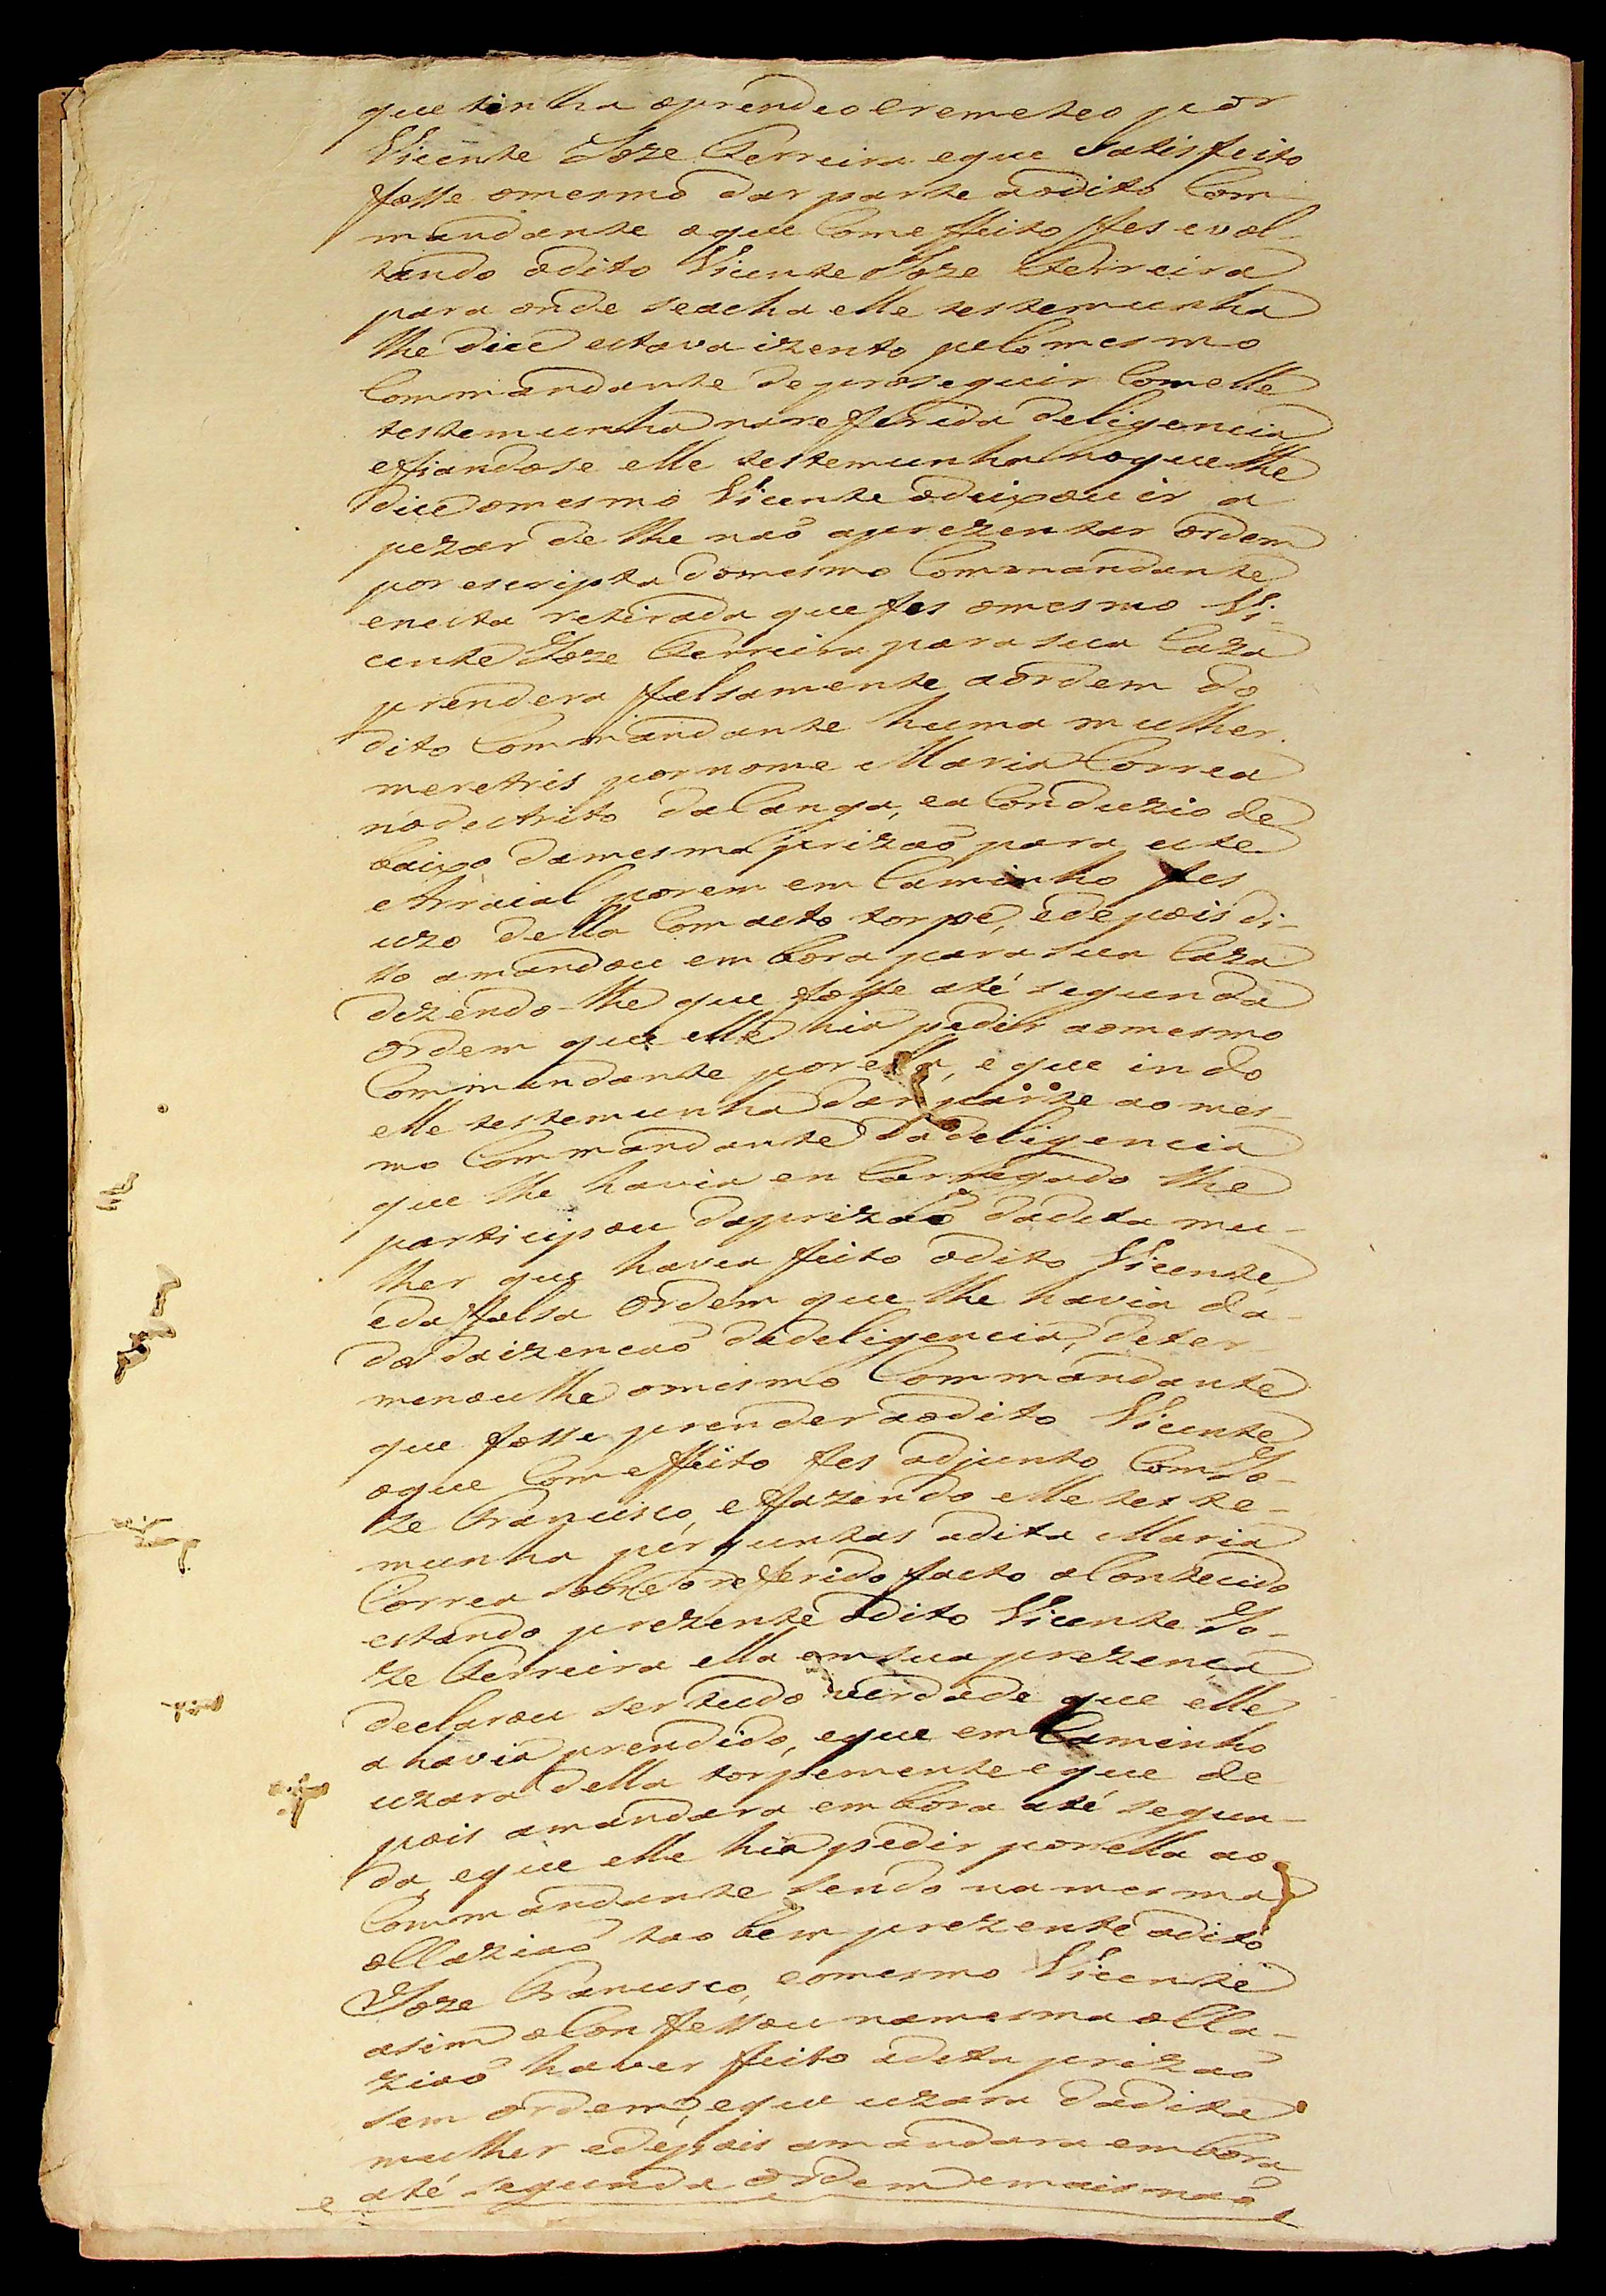 que tinha aprendeo e remeteo por
Vicente Joze Ferreira eque Satisfeito
fosse omesmo dar parte aodito Com-
mandante oque Com effeito fes evol-
tando odito Vicente Joze Ferreira
para onde seacha elle testemunha
lhe dice estava izento pelo mesmo
Commandante deproseguir Com elle
testemunha nareferida deligencia
efiandose elle testemunha noque lhe
dice omesmo Vicente odeixou ir a
pezar de lhe naõ aprezentar ordem
por escripta domesmo Commandante
enesta retirada que fes omesmo Vi-
cente Joze Ferreira para sua Caza
prendera falsamente aordem do
dito Commandante huma mulher
meretris por nome Maria Correa
nodestrito da Canga, ea Conduzio de
baixo damesma prizaõ para este
Arraial porem em Caminho fes
uzo della Com acto torpe, edepois di-
so amandou embora para sua Caza
dezendo-lhe que fosse até segunda
ordem que elle hia pedir aomesmo
Commandante por ella, e que indo
elle testemunha dar parte ao mes-
mo Commandante dadeligencia
que lhe havia en Carregado lhe
participou daprizaõ dadita mu-
lher que havia feito odito Vicente,
eda falsa ordem que lhe havia da-
do daizencaõ dadeligencia, deter-
menou lhe omesmo Commandante
que fosse prender aodito Vicente
oque Com effeito fes adjunto Com Jo-
ze Francisco, efazendo elle teste-
munha perguntas adita Maria
Correa sobre o referido facto aContecido
estando prezente odito Vicente Jo-
ze Ferreira ella em sua prezença
declarou ser tudo verdade que elle
a havia prendido, eque em Caminho
uzara della torpemente eque de
pois amandara embora até segun-
da eque elle hia pedir por ella ao
Commandante sendo namesma
ollaziaõ taobem prezente odito
Joze Francisco, eomesmo Vicente
asim oConfessou namesma olla-
ziaõ haver feito adita prizaõ
sem ordem, eque uzara dadita
mulher edepois amandara embora
até segunda ordem emais naõ